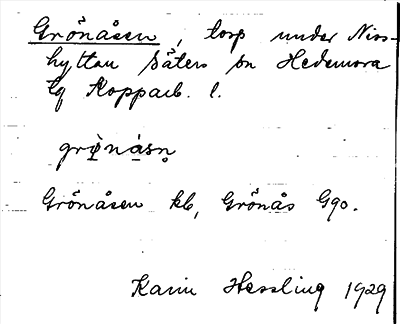 Grönåsen, torp under Niss-
hyttan Säters sn Hedemora
tg Kopparb. l.
grø̀nàsn̥
Grönåsen kb, Grönås G90.
Karin Hessling 1929